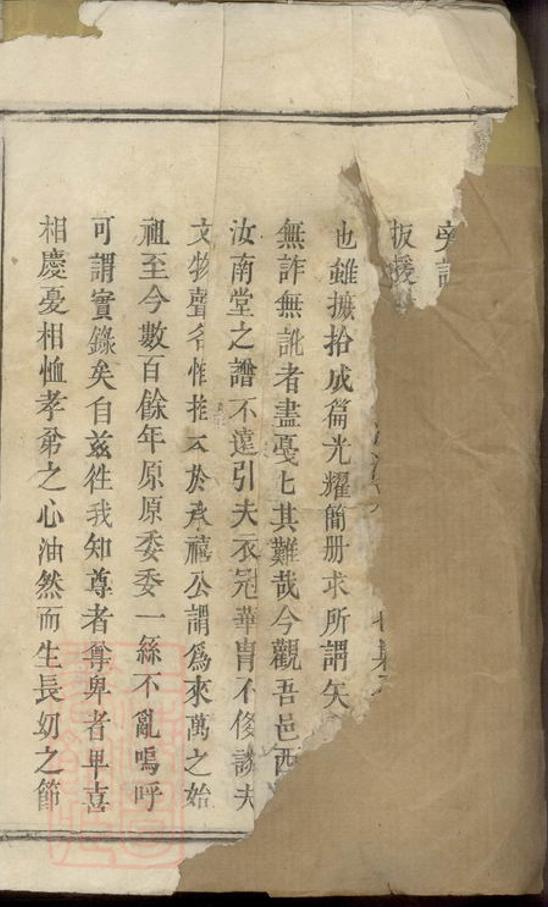 旁記
扳援
也雖摭拾成篇光耀簡册求所謂矢
無詐無訛者盡戞七其難哉今觀吾邑西
汝南堂之譜不遠引夫衣冠華胄不侈談夫
文物聲名惟推於承禧公謂爲來萬之始
祖至今數百餘年原原委委一絲不亂嗚呼
可謂實錄矣自兹徃我知尊者尊卑者卑喜
相慶憂相恤孝弟之心油然而生長幼之節